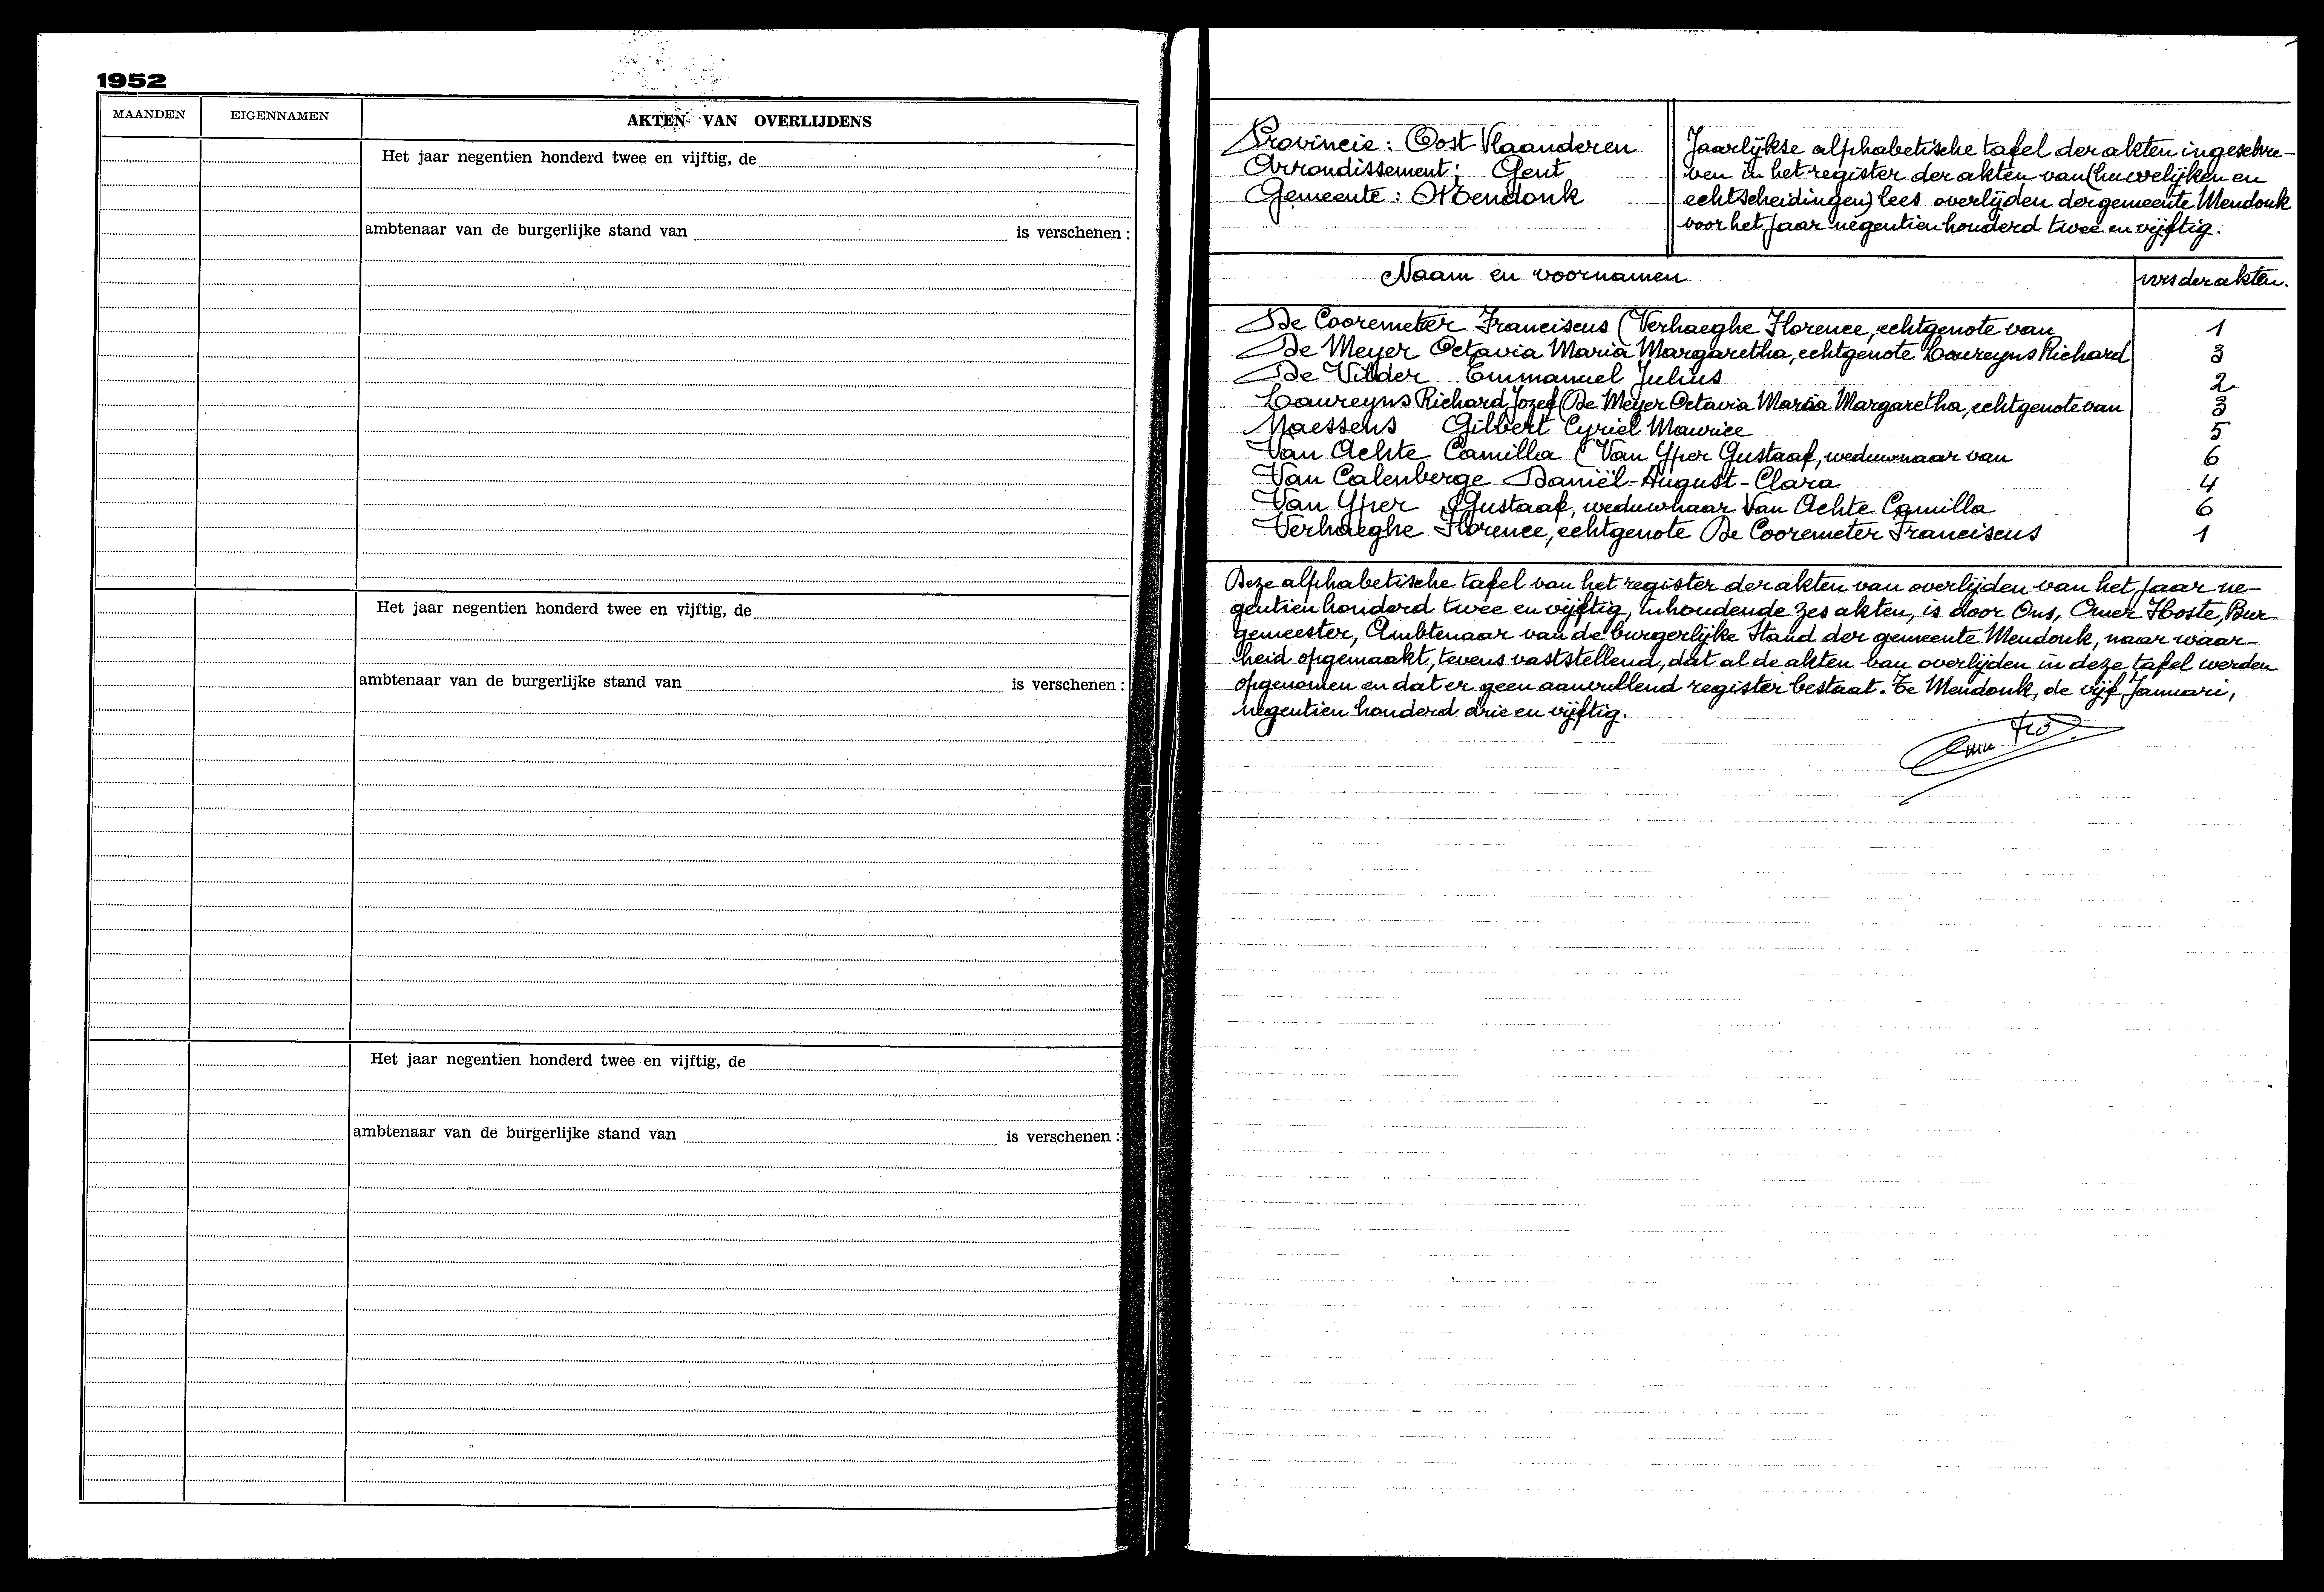 1952
MAANDEN
EIGENNAMEN
AKTEN VAN OVERLIJDENS
Het jaar negentien honderd twee en vijftig, de
ambtenaar van de burgerlijke stand van is verschenen :
Het jaar negentien honderd twee en vijftig, de
ambtenaar van de burgerlijke stand van is verschenen :
Het jaar negentien honderd twee en vijftig, de
ambtenaar van de burgerlijke stand van is verschenen :
Provincie : Oost Vlaanderen
Arrondissement : Gent
Gemeente : Mendonk
Jaarlijkse alphabetische tafel der akten ingeschre-
ven in het register der akten van (huwelijken en
echtscheidingen) lees overlijden der gemeente Mendonk
voor het Jaar negentien honderd twee en vijftig.
Naam en voornamen
nrs der akten.
De Cooremeter Franciscus (Verhaeghe Florence, echtgenote van 1
De Meyer Octavia Maria Margaretha, echtgenote Laureyns Richard 3
De Vilder Emmanuel Julius 2
Laureyns Richard Jozef (De Meyer Octavia Maria Margaretha, echtgenote van 3
Maessens Gilbert Cyriel Maurice 5
Van Achte Camilla (Van Yper Gustaaf, weduwnaar van 6
Van Calenberge Daniël-August-Clara 4
Van Yper Gustaaf, weduwnaar Van Achte Camilla 6
Verhaeghe Florence, echtgenote De Cooremeter Franciscus 1
Deze alphabetische tafel van het register der akten van overlijden van het Jaar ne-
gentien honderd twee en vijftig, inhoudende zes akten, is door Ons, Omer Hoste, Bur-
gemeester, Ambtenaar van de burgerlijke Stand der gemeente Mendonk, naar waar-
heid opgemaakt, tevens vaststellend, dat al de akten van overlijden in deze tafel werden
opgenomen en dat er geen aanvullend register bestaat. Te Mendonk, de vijf Januari,
negentien honderd drie en vijftig.